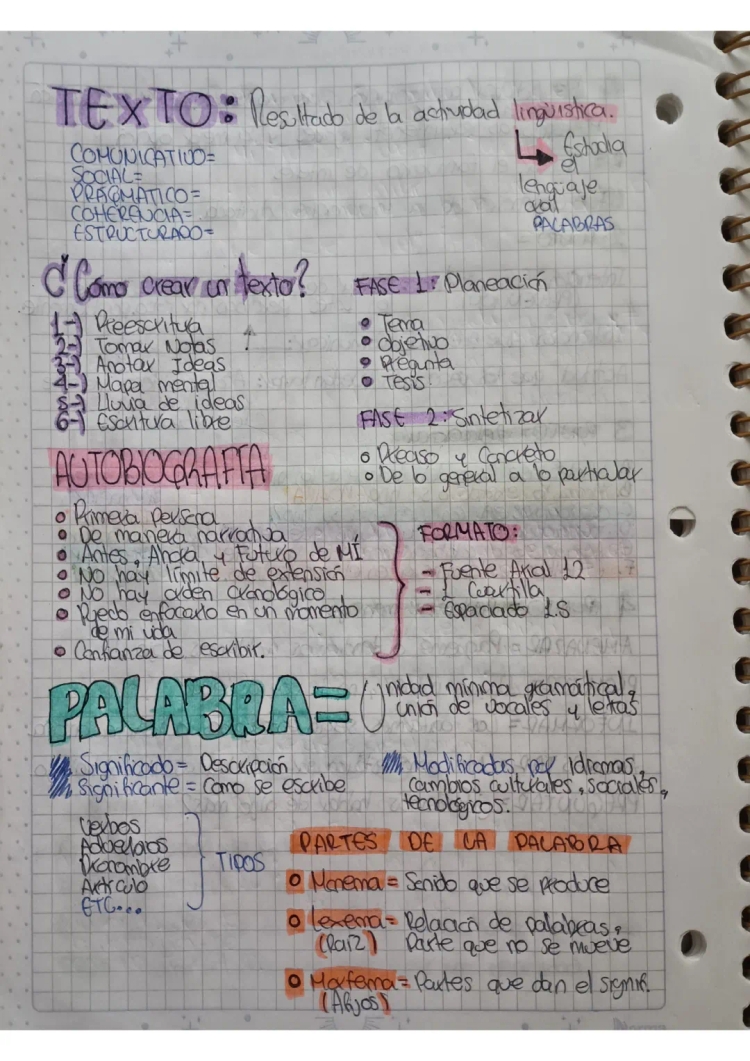 TEXTO: Resultado de la actividad lingüistica.
Estudia
el
lenguaje
oral
PALABRAS
COMUNICATIVO=
SOCIAL=
PRAGMATICO=
COHERENCIA=
ESTRUCTURADO=
¿Cómo crear un texto?
1-) Preescritura
2-) Tomar Notas
3-) Anotar Ideas
4-) Mapa mental
5-) Lluvia de ideas
6-) Escritura libre
FASE 1: Planeación
• Tema
• objetivo
• Pregunta
• Tesis
FASE 2: Sintetizar
• Preciso y Concreto
• De lo general a lo particular
AUTOBIOGRAFIA
• Primera persona
• De manera narrativa
• Antes, Ahora y Futuro de MÍ
• No hay límite de extensión
• No hay orden cronológico
• Puedo enfocarlo en un momento
de mi vida
• Confianza de escribir.
FORMATO:
- Fuente Arial 12
- 1 Cuartilla
- Espaciado 1.5
PALABRA= Unidad mínima gramatical,
unión de vocales y letras
Significado = Descripción
Significante = Como se escribe
Modificadas por Idiomas,
cambios culturales, sociales,
tecnológicos.
Verbos
Adverbios
Pronombre
Artículo
ETC...
TIPOS
PARTES DE LA PALABRA
• Monema = Sonido que se produce
• Lexema = Relación de palabras,
(Raíz) Parte que no se mueve
• Morfema = Partes que dan el signif.
(Afijos)